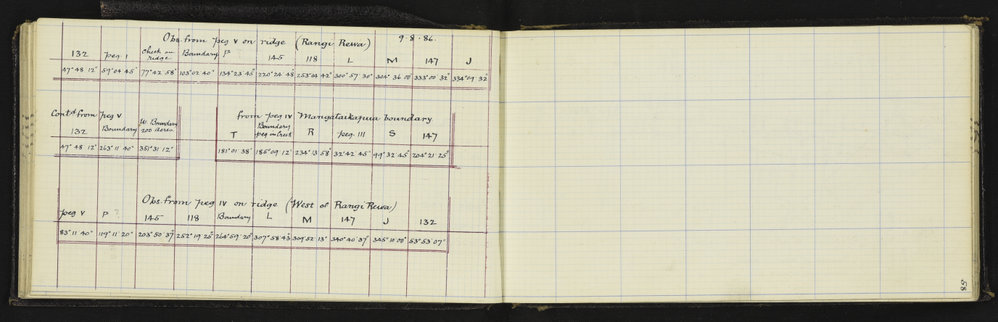 Obs. from peg V on ridge (Rangi Rewa) 9.8.86.
132 peg I Check on ridge Boundary P ? 145 118 L M 147 J
47° 48 12" 59° 04 45" 77° 42 58" 103° 02 40" 134° 23 45" 220° 26 48 253° 04 42" 300° 57 30" 304° 36 00" 333° 00 32" 334° 09 32"
Contd from peg V
132 Boundary W Boundary 200 Acres
47° 48 12" 263° 11 40" 351° 31 12"
from peg IV Mangataikapua boundary
T Boundary peg on Crest R peg III S 147
181° 01 38" 185° 09 12" 234° 13 58" 32° 42 45" 99° 32 45" 204° 21 25"
Obs. from peg IV on ridge (West of Rangi Rewa)
peg V P ? 145 118 Boundary L M 147 J 132
83° 11 40" 119° 11 20" 203° 50 37" 252° 19 25" 264° 59 20" 307° 58 43" 309° 52 13" 340° 40 37" 345° 11 08" 53° 53 07"
58